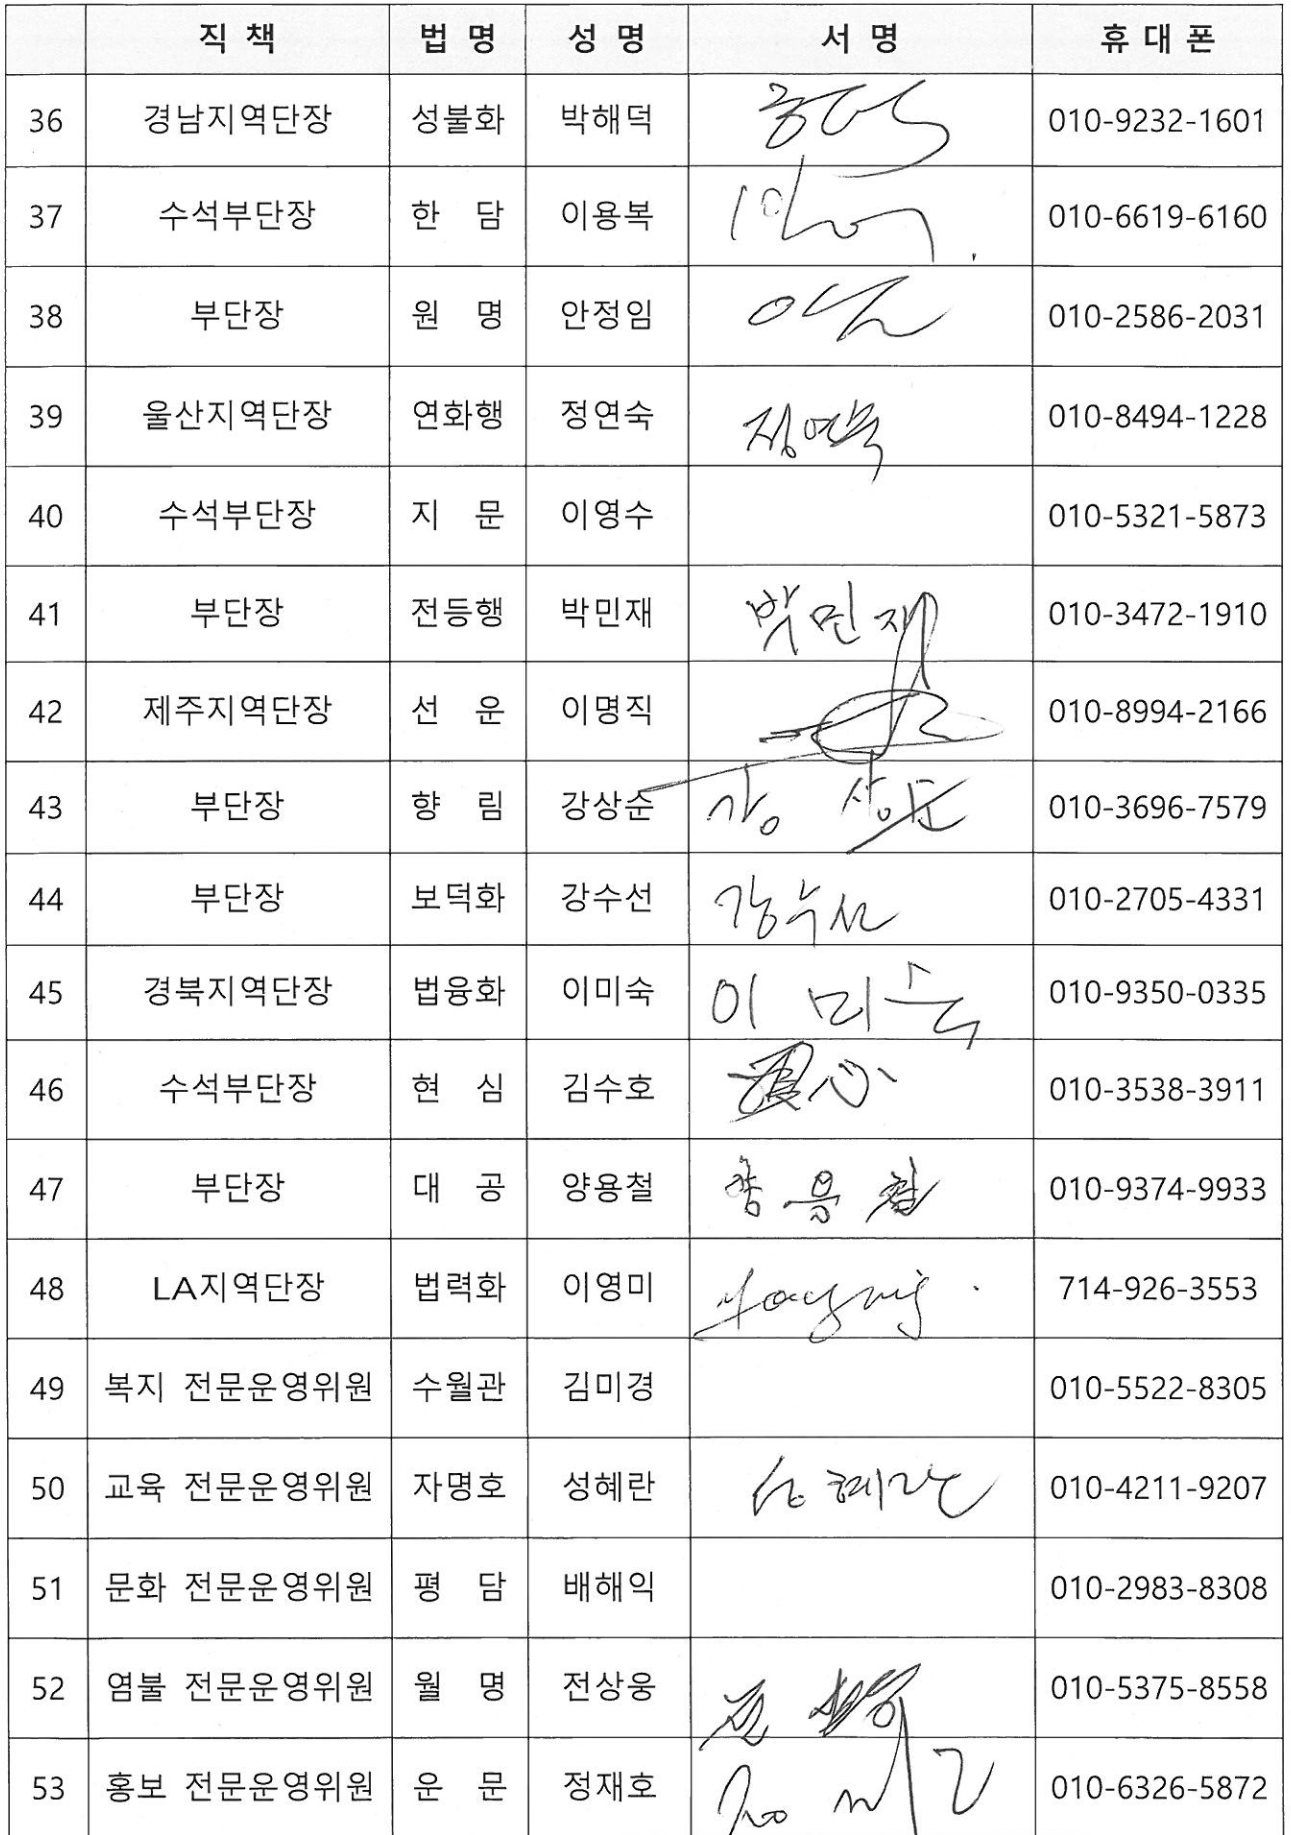 직 책 법 명 성 명 서 명 휴 대 폰
36 경남지역단장 성불화 박해덕 010-9232-1601
37 수석부단장 한 담 이용복 010-6619-6160
38 부단장 원 명 안정임 010-2586-2031
39 울산지역단장 연화행 정연숙 정연숙 010-8494-1228
40 수석부단장 지 문 이영수 010-5321-5873
41 부단장 전등행 박민재 박민재 010-3472-1910
42 제주지역단장 선 운 이명직 010-8994-2166
43 부단장 향 림 강상순 강상순 010-3696-7579
44 부단장 보덕화 강수선 강수선 010-2705-4331
45 경북지역단장 법융화 이미숙 이미숙 010-9350-0335
46 수석부단장 현 심 김수호 010-3538-3911
47 부단장 대 공 양용철 양용철 010-9374-9933
48 LA지역단장 법력화 이영미 714-926-3553
49 복지 전문운영위원 수월관 김미경 010-5522-8305
50 교육 전문운영위원 자명호 성혜란 성혜란 010-4211-9207
51 문화 전문운영위원 평 담 배해익 010-2983-8308
52 염불 전문운영위원 월 명 전상웅 010-5375-8558
53 홍보 전문운영위원 운 문 정재호 010-6326-5872